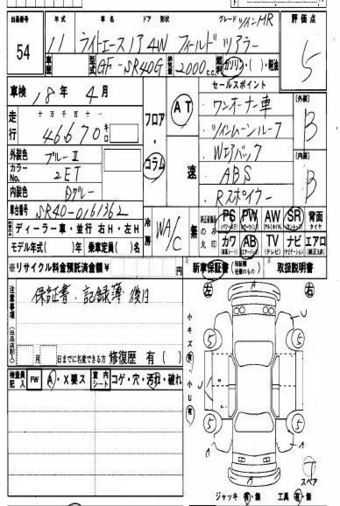 出品番号 年式 車名 ドア 形状 グレード ツインMR 評価点
54 11 ライトエースノア 4W フィールドツアラー 5
車歴 型式 GF-SR40G 排気量 2000cc 燃料 ガソリン・( )・軽油
車検 18年 4月 セールスポイント
走行 十万千百十一
46670 キロ
フロア・コラム
AT
速
・ワンオーナー車
・ツインムーンルーフ
・Wエアバック
・ABS
・Rスポイラー
外装 B
内装 B
外装色 ブルーII
カラーNo. 2ET
内装色 Dグレー
車台番号 SR40-0161362
冷房 WA/C
ディーラー車・並行 右H・左H
モデル年式( )年 乗車定員( )名
無
PS PW AW SR 背面タイヤ
カワ AB TV ナビ エアロ
※リサイクル料金預託済金額¥ 円
新車保証書 取扱説明書
注意事項
保証書、記録簿 後日
月 日までに名変できる方
修復歴 有( )
検査員記入 FW A・X要ス 室内シート コゲ・穴・汚れ・破れ
小キズ有
小U有
左 右
5 5
5 5
A
U
T
スペア
ジャッキ 有・無 工具 有・無